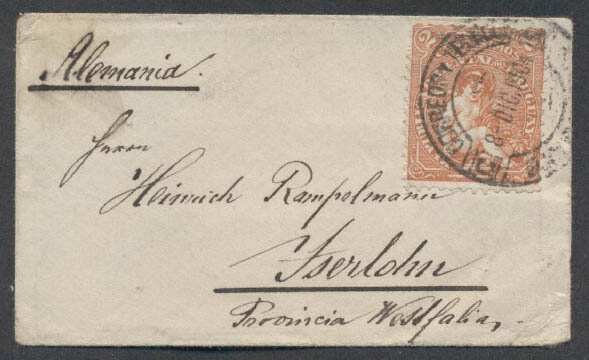 Alemania.
Herrn
Heinrich Rampolmann
Iserlohn
Provincia Westfalia,